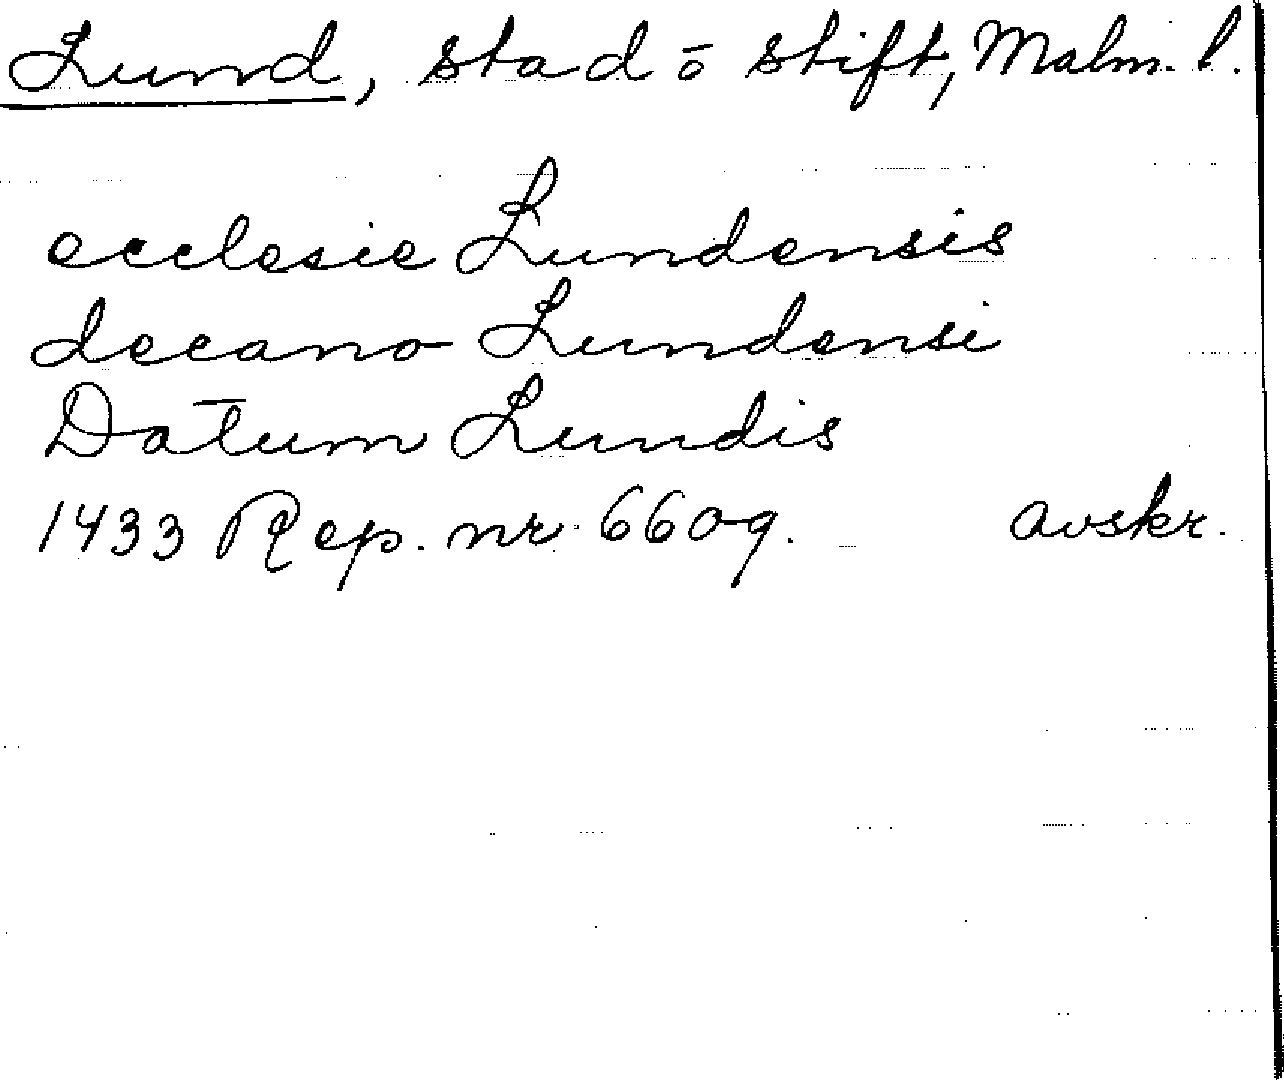 Lund, stad ō stift, Malm. l.
ecclesie Lundensis
decano Lundensi
Datum Lundis
1433 Rep. nr. 6609. avskr.